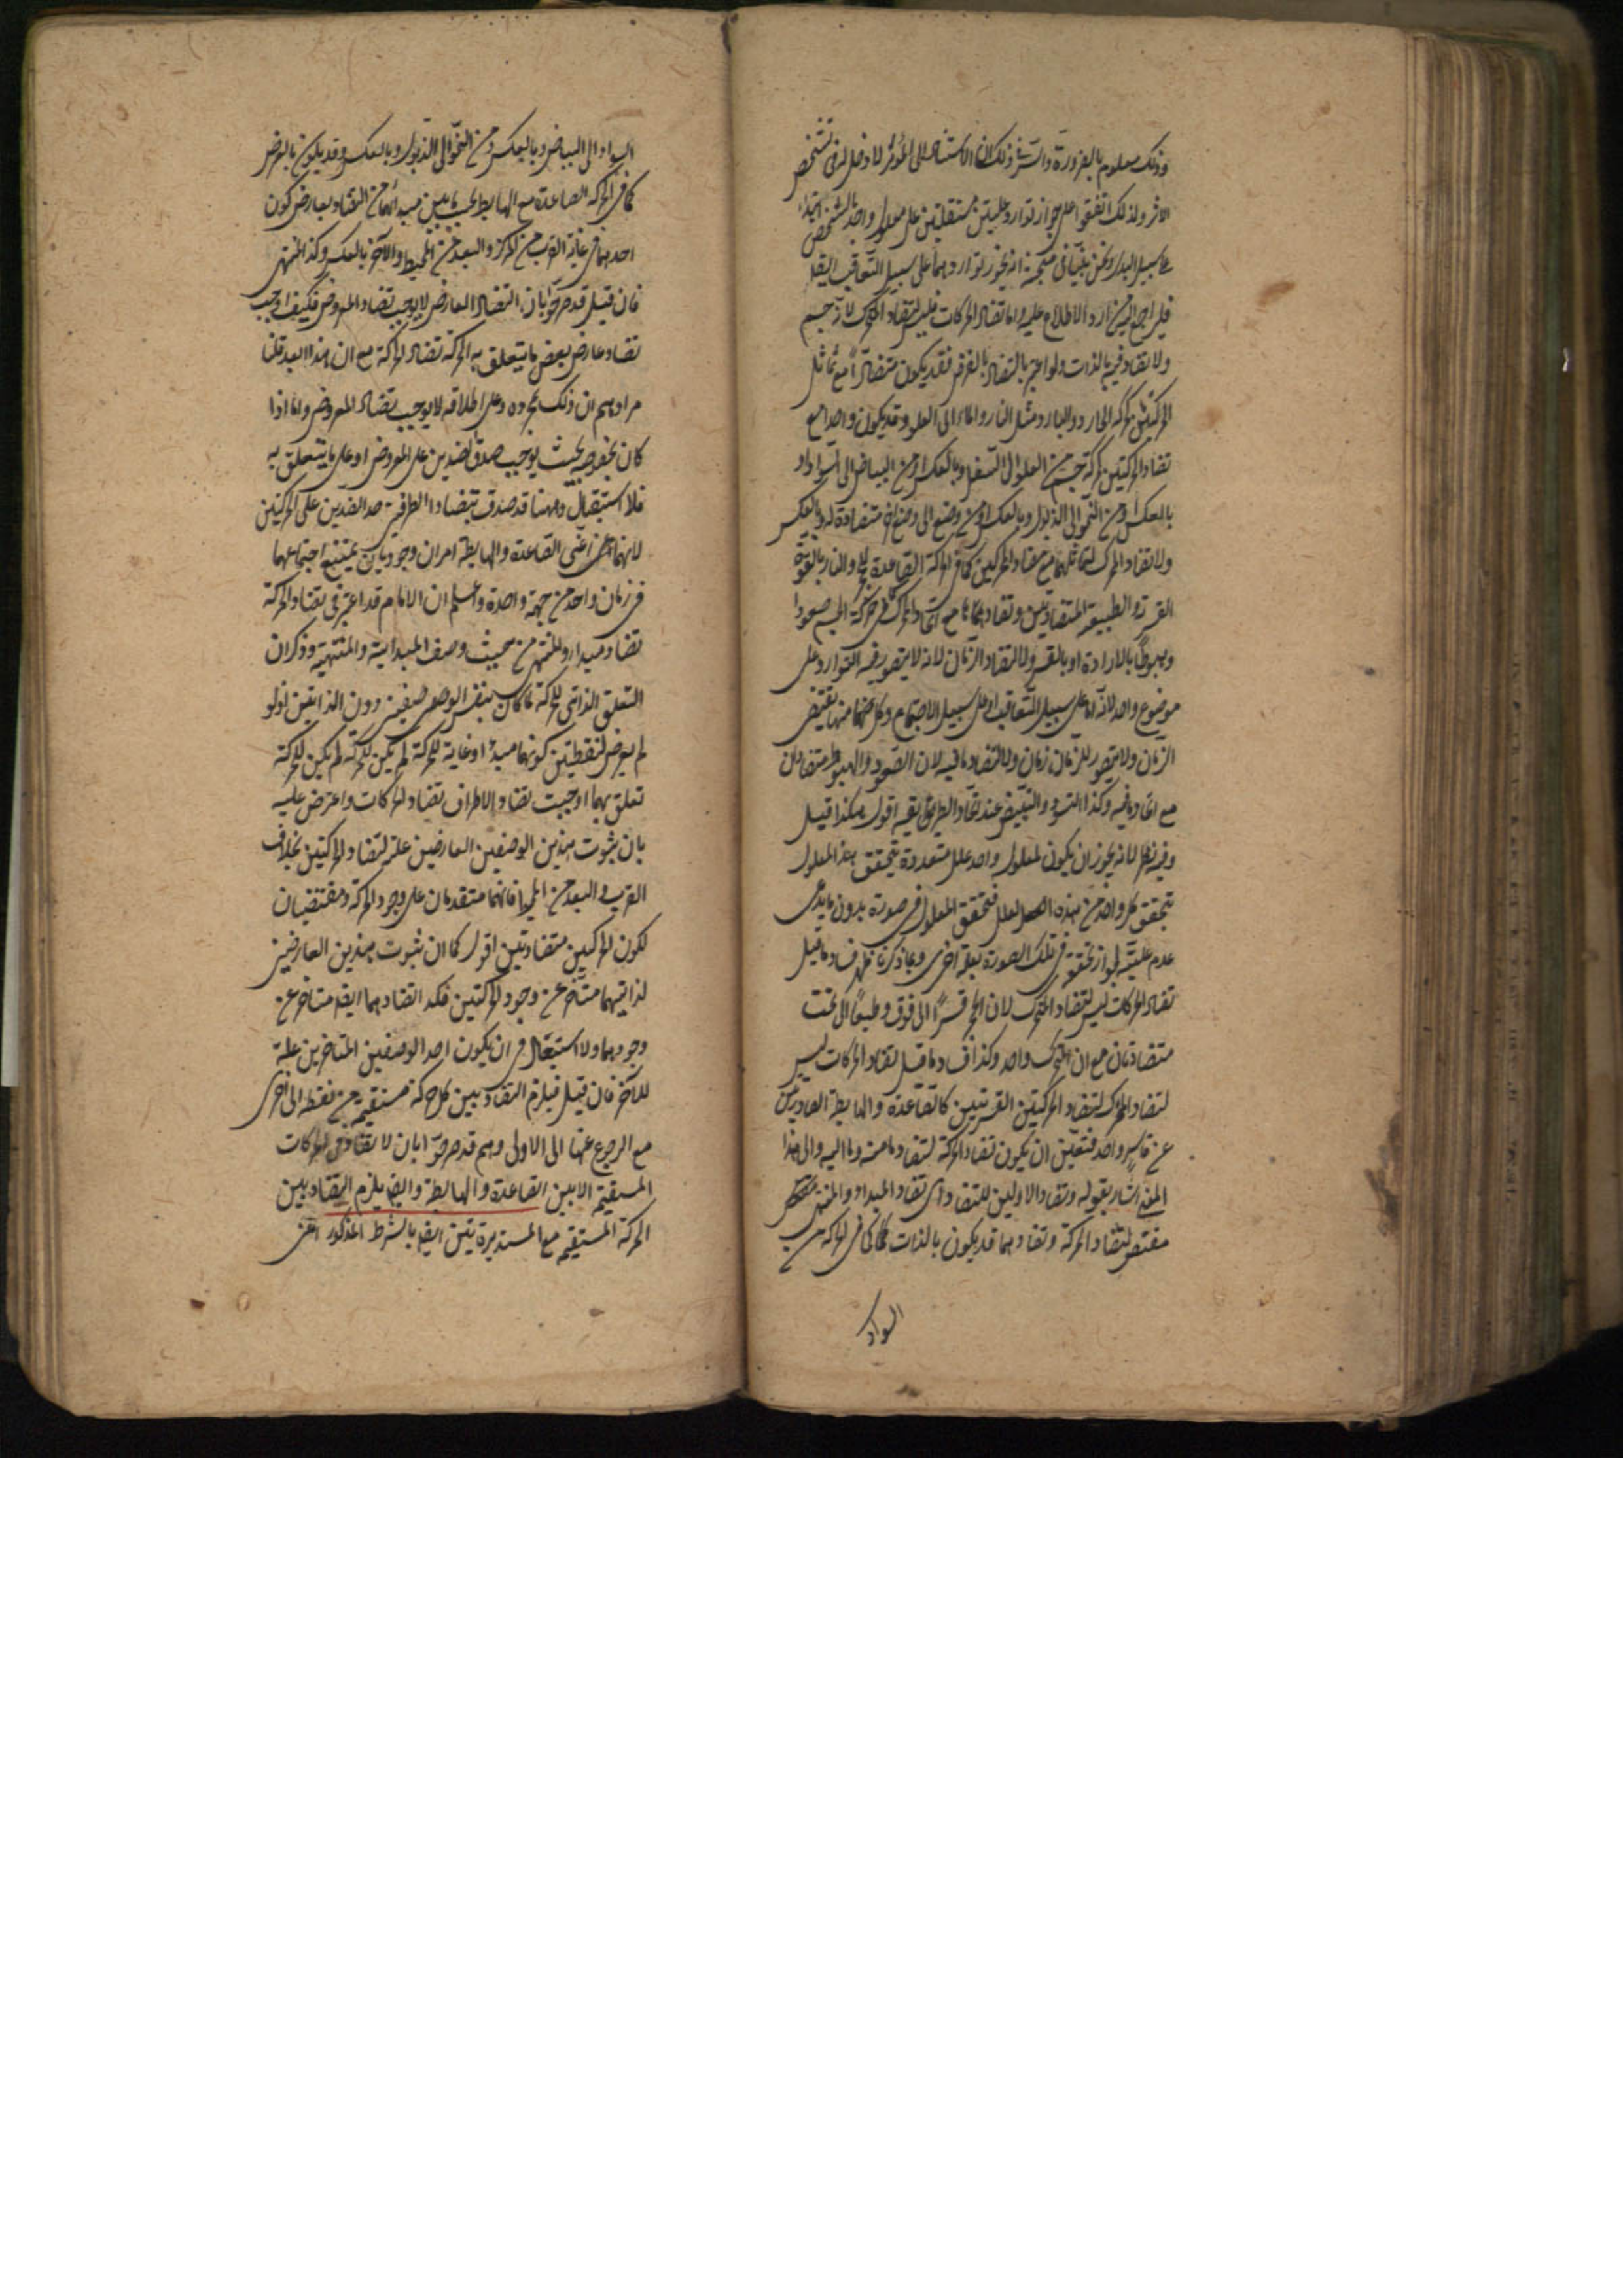 وذلك معلوم بالضرورة والسر في ذلك ان الاستناد الى المؤثر لا دخل له في تشخص
الاثر ولذلك اتفقوا على جواز توارد علتين مستقلتين على معلول واحد بالشخص ابتداء
على سبيل البدل ونحن بينا في مبحث انه يجوز تواردهما على سبيل التعاقب ايضا
فليراجع اليه من اراد الاطلاع عليه واما تضاد الحركات فليس لتضاد المتحرك لانه جسم
ولا تضاد فيه بالذات ولو اعتبر التضاد بالعرض فقد يكون متضادا مع تماثل
الحركتين كحركة الحار والبارد مثل النار والماء الى العلو وقد يكون واحدا مع
تضاد الحركتين كحركة جسم من العلو الى السفل وبالعكس او من البياض الى السواد و
بالعكس او من النمو الى الذبول وبالعكس او من وضع الى وضع متضادة له وبالعكس
ولا لتضاد المحرك لتماثلهما مع تضاد الحركتين كما في الحركة الصاعدة للحجر والنار بالقوة
القسرية والطبيعية المتضادتين وتضادهما مع اتحاد المحرك كما في حركة الجسم صعودا
وهبوطا بالارادة او بالقسر ولا لتضاد الزمان لانه لا يتصور فيه التوارد على
موضوع واحد لانه اما على سبيل التعاقب او على سبيل الاجتماع وكل منهما يقتضي
الزمان ولا يتصور للزمان زمان ولا لتضاد ما فيه لان الصعود والهبوط متضادان
مع اتحاد ما فيه وكذا التسود والتبيض عند اتحاد الطريق بقي اقول هكذا قيل
وفيه نظر لانه يجوز ان يكون لمعلول واحد علل متعددة يتحقق هذا المعلول
بتحقق كل واحد من هذه العلل فتحقق المعلول في صورة بدون ما يدعى
عدم عليته لجواز تحققه في تلك الصورة بعلة اخرى وبما ذكرنا ظهر فساد ما قيل
تضاد الحركات ليس لتضاد المتحرك لان الحجر قسرا الى فوق وطبعا الى تحت
متضادتان مع ان المتحرك واحد وكذا فساد ما قيل تضاد الحركات ليس
لتضاد المحرك لتضاد الحركتين القسريتين كالصاعدة والهابطة الصادرتين
عن قاسر واحد فتعين ان يكون تضاد الحركة لتضاد ما منه وما اليه والى هذا
المعنى اشار بقوله وتضاد الاولين للتضاد اى تضاد المبدأ والمنتهى
مقتض لتضاد الحركة وتضادهما قد يكون بالذات كما في الحركة من
السواد
السواد الى البياض وبالعكس ومن النمو الى الذبول وبالعكس وقد يكون بالعرض
كما في الحركة الصاعدة مع الهابطة بحيث ما بين مبدأيهما من التضاد بعارض كون
احدهما في غاية القرب من المركز والبعد من المحيط والآخر بالعكس وكذا المنتهى
فان قيل قد صرحوا بان التضاد العارض لا يوجب تضاد المعروض فكيف اوجب
تضاد عارض بعض ما يتعلق به الحركة تضاد الحركة مع ان هذا ابعد قلنا
مرادهم ان ذلك بمجرده وعلى اطلاقه لا يوجب تضاد المعروض واما اذا
كان بخصوصه بحيث يوجب صدق الضدين على المعروض او على ما يتعلق به
فلا استبعاد وههنا قد صدق بتضاد الطرفين حد الضدين على الحركتين
لانهما اعنى الصاعدة والهابطة امران وجوديان يمتنع اجتماعهما
في زمان واحد من جهة واحدة واعلم ان الامام قد اعتبر في تضاد الحركة
تضاد مبدأ والمنتهى من حيث وصف المبدائية والمنتهية وذكر ان
التعلق الذاتى للحركة لما كان بنفس الوصفين دون الذاتين اذ لو
لم يعرض لنقطتين كونهما مبدأ او غاية للحركة لم يكن للحركة
تعلق بهما اوجبت تضاد الاطراف تضاد الحركات واعترض عليه
بان ثبوت هذين الوصفين العارضين علة لتضاد الحركتين بخلاف
القرب والبعد من المحيط فانهما متقدمان على وجود الحركة ومقتضيان
لكون الحركتين متضادتين اقول كما ان ثبوت هذين العارضين
لذاتيهما متأخر عن وجود الحركتين فكذا تضادهما ايضا متأخر عن
وجودهما ولا استبعاد في ان يكون احد الوصفين المتأخرين علة
للآخر فان قيل فيلزم التضاد بين كل حركة مستقيمة من نقطة الى اخرى
مع الرجوع عنها الى الاولى وهم قد صرحوا بان لا تضاد في الحركات
المستقيمة الا بين الصاعدة والهابطة وايضا يلزم التضاد بين
الحركة المستقيمة مع المستديرة بين ايضا بالشرط المذكور اعنى